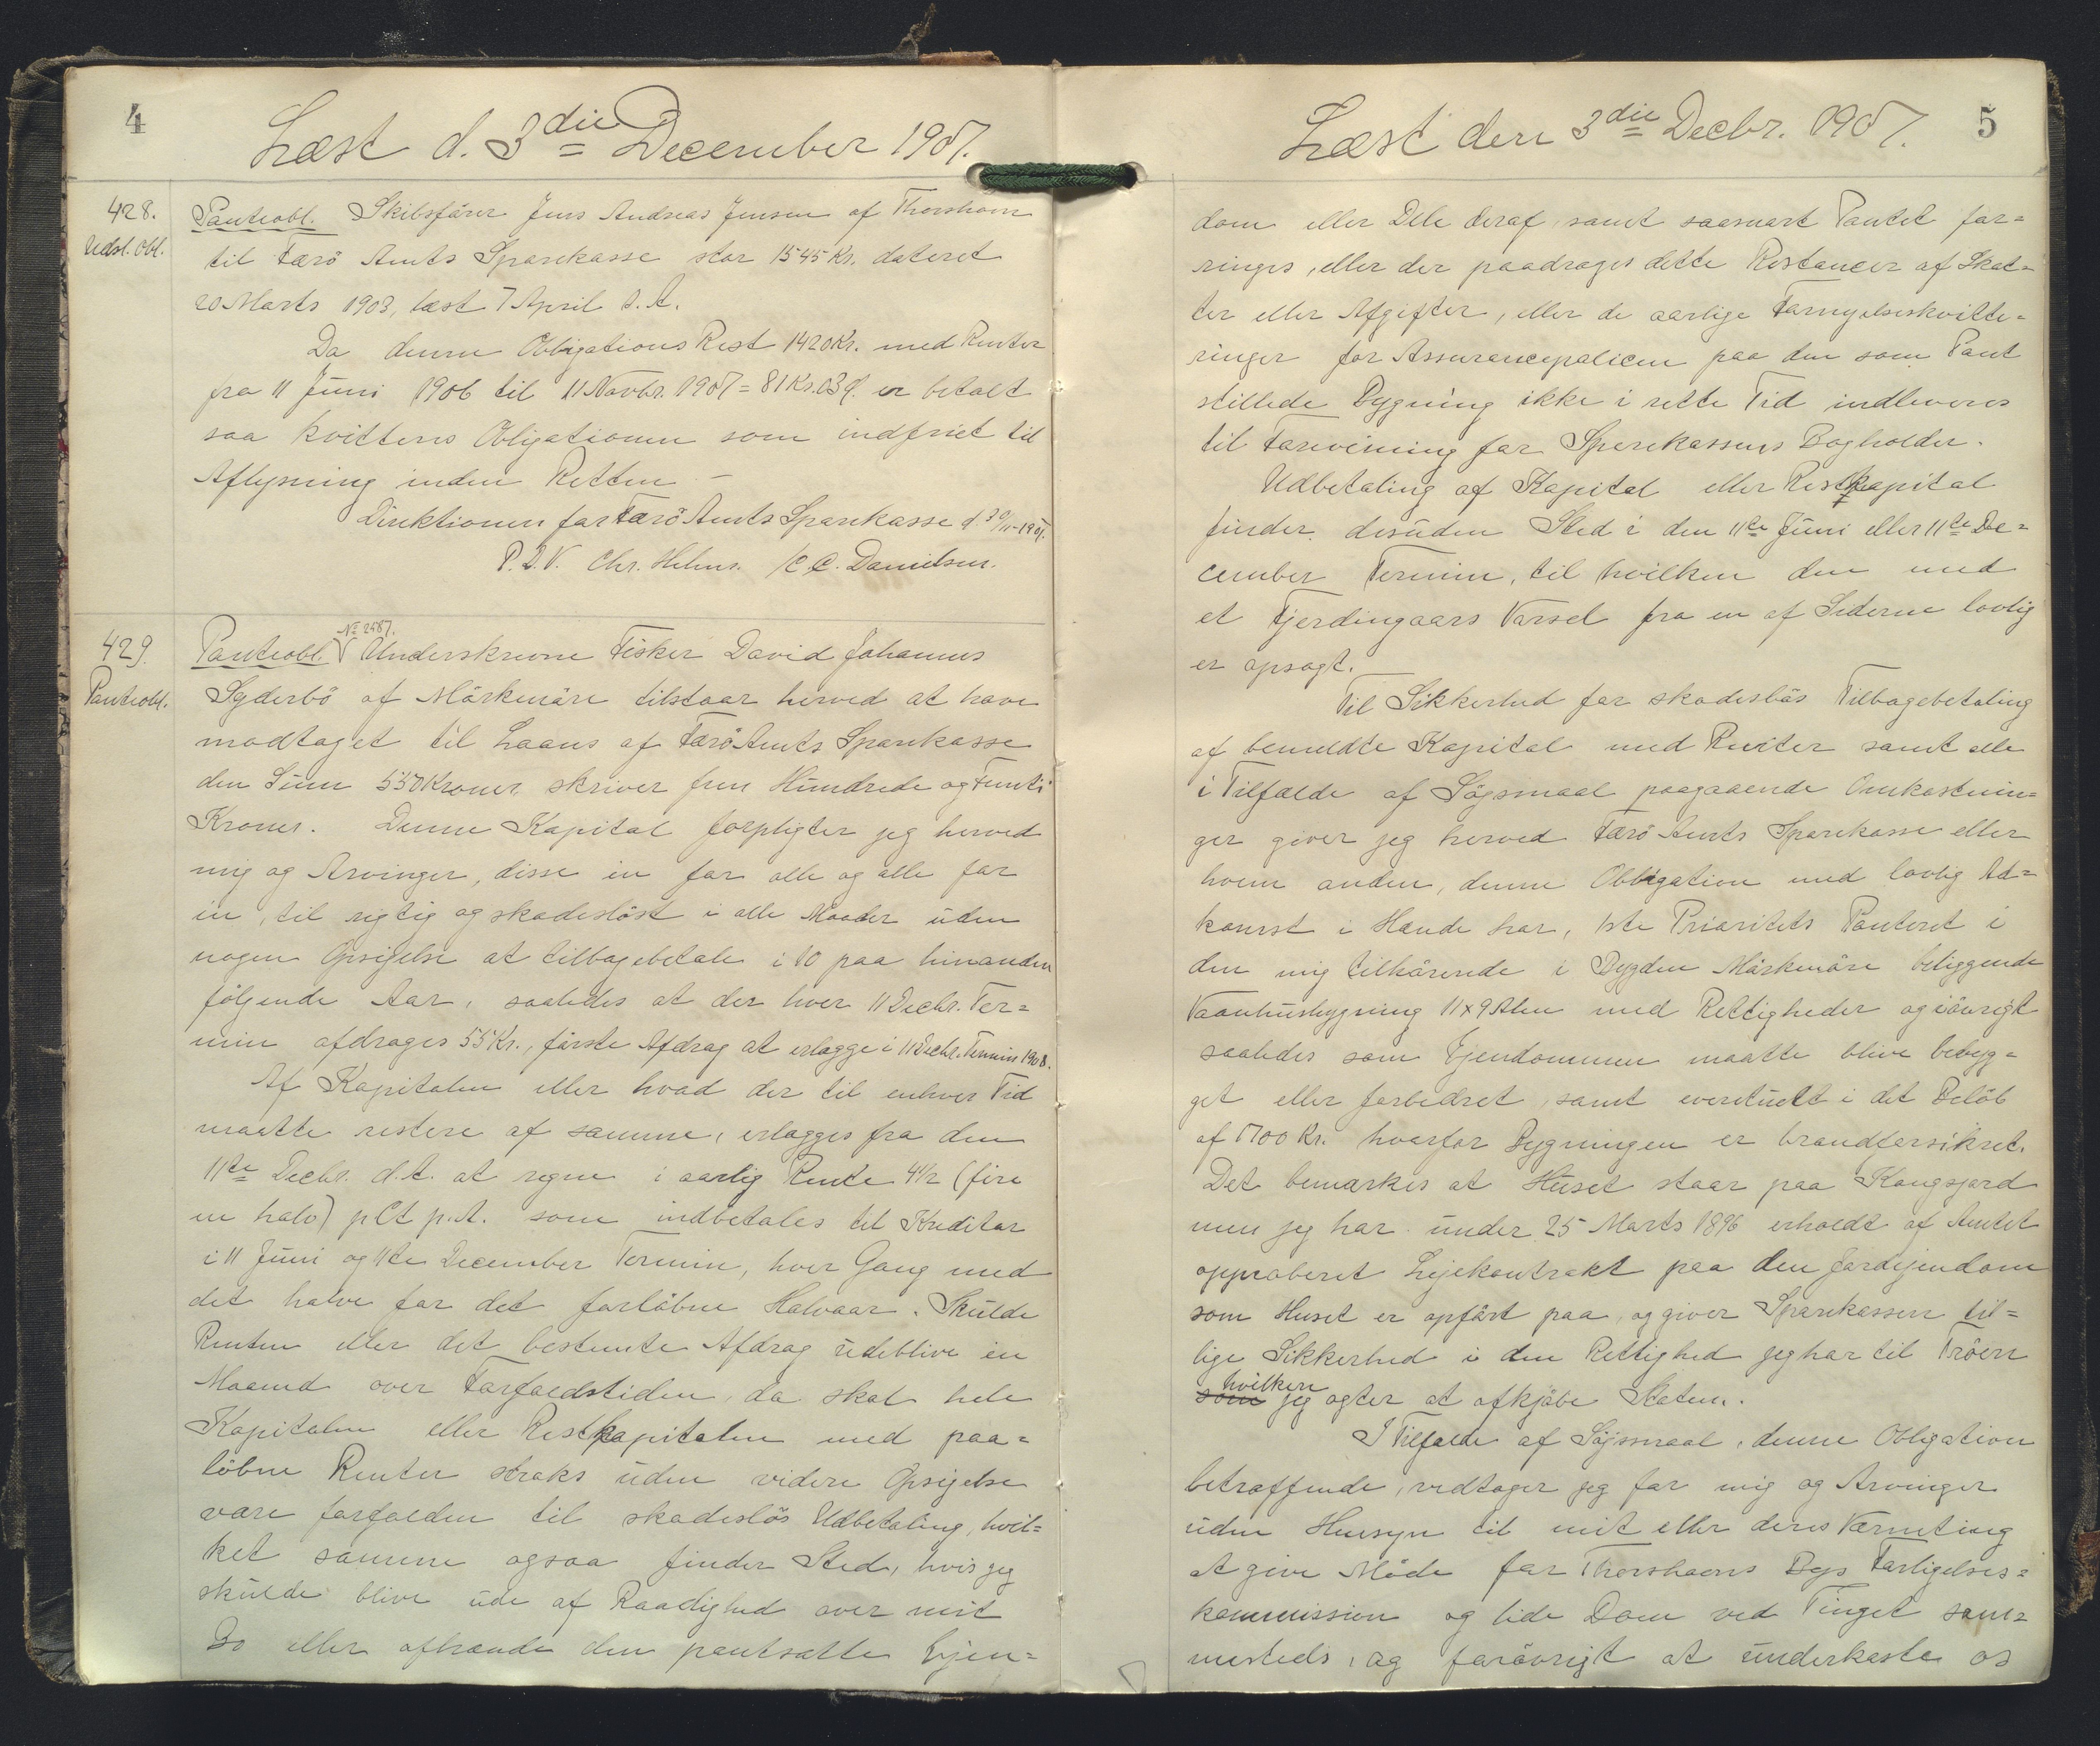 4
Læst d. 3die December 1907.
428.
Udsl. Obl.
Panteobl. Skibsfører Jens Andreas Jensen af Thorshavn
til Færö Amts Sparekasse stor 1545 Kr. dateret
20 Marts 1903, læst 7 April s. A.
Da denne Obligations Rest 1420 Kr. med Renter
fra 11 Juni 1906 til 11 Novbr. 1907 = 81 Kr. 03 Ø. er betalt
saa kvitteres Obligationen som indfriet til
Aflysning inden Retten. –
Direktionen for Færö Amts Sparekasse d. 30/11-1907.
P.D.V. Chr. Holms. /C. C. Danielsen.
429.
Panteobl.
Panteobl. № 2487. Underskrevne Fisker David Johannes
Syderbö af Mörkenöre tilstaar herved at have
modtaget til Laans af Færö Amts Sparekasse
den Sum 550 Kroner, skriver fem Hundrede og Femti
Kroner. Denne Kapital forpligter jeg herved
mig og Arvinger, disse en for alle og alle for
en, til rigtig og skadeslöst i alle Maader uden
nogen Opsigelse at tilbagebetale i 10 paa hinanden
fölgende Aar, saaledes at der hver 11 Decbr. Ter=
min afdrages 55 Kr., förste Afdrag at erlægge i 11 Decbr. Termin 1908.
Af Kapitalen eller hvad der til enhver Tid
maatte restere af samme, erlægges fra den
11te Decbr. d. A. at regne i aarlig Rente 4 1/2 (fire
en halv) pCt p. A. som indbetales til Kreditor
i 11 Juni og 11te December Termin, hver Gang med
det halve for det forlöbne Halvaar. Skulde
Renten eller det bestemte Afdrag udeblive en
Maaned over Forfaldstiden, da skal hele
Kapitalen eller Restkapitalen med paa=
löbne Renter straks uden videre Opsigelse
være forfalden til skadeslös Udbetaling, hvil=
ket samme ogsaa finder Sted, hvis jeg
skulde blive ude af Raadighed over mit
Bo eller afhænde den pantsatte Ejen=
5
Læst den 3die Decbr. 1907.
dom eller Dele deraf, samt saasnart Pantet for=
ringes, eller der paadrages dette Restancer af Skat=
ter eller Afgifter, eller de aarlige Fornyelseskvitte=
ringer for Assurancepolicen paa den som Pant
stillede Bygning ikke i rette Tid indleveres
til Forevisning for Sparekassens Bogholder.
Udbetaling af Kapital eller Restkapital
finder desuden Sted i den 11te Juni eller 11te De=
cember Termin, til hvilken den med
et Fjerdingaars Varsel fra en af Siderne lovlig
er opsagt.
Til Sikkerhed for skadeslös Tilbagebetaling
af bemeldte Kapital med Renter samt alle
i Tilfælde af Sögsmaal paagaaende Omkostnin=
ger giver jeg herved Færö Amts Sparekasse eller
hvem anden, denne Obligation med lovlig Ad=
komst i Hænde har, 1ste Prioritets Panteret i
den mig tilhörende i Bygden Mörkenöre beliggende
Vaanhusbygning 11 x 9 Alen med Rettigheder og iövrigt
saaledes som Ejendommen maatte blive bebyg=
get eller forbedret, samt eventuelt i det Belöb
af 1700 Kr. hvorfor Bygningen er brandforsikret.
Det bemærkes at Huset staar paa Kongsjord
men jeg har under 25 Marts 1896 erholdt af Amtet
approberet Lejekontrakt paa den Jordejendom
som Huset er opfört paa, og giver Sparekassen til=
lige Sikkerhed i den Rettighed jeg har til Tröen
som hvilken jeg agter at afkjöbe Staten.
I Tilfælde af Söjsmaal, denne Obligation
betræffende, vedtager jeg for mig og Arvinger
uden Hensyn til mit eller deres Værneting
at give Möde for Thorshavns Bys Forligelses=
kommission og lide Dom ved Tinget sam=
mesteds, og forövrigt at underkaste os